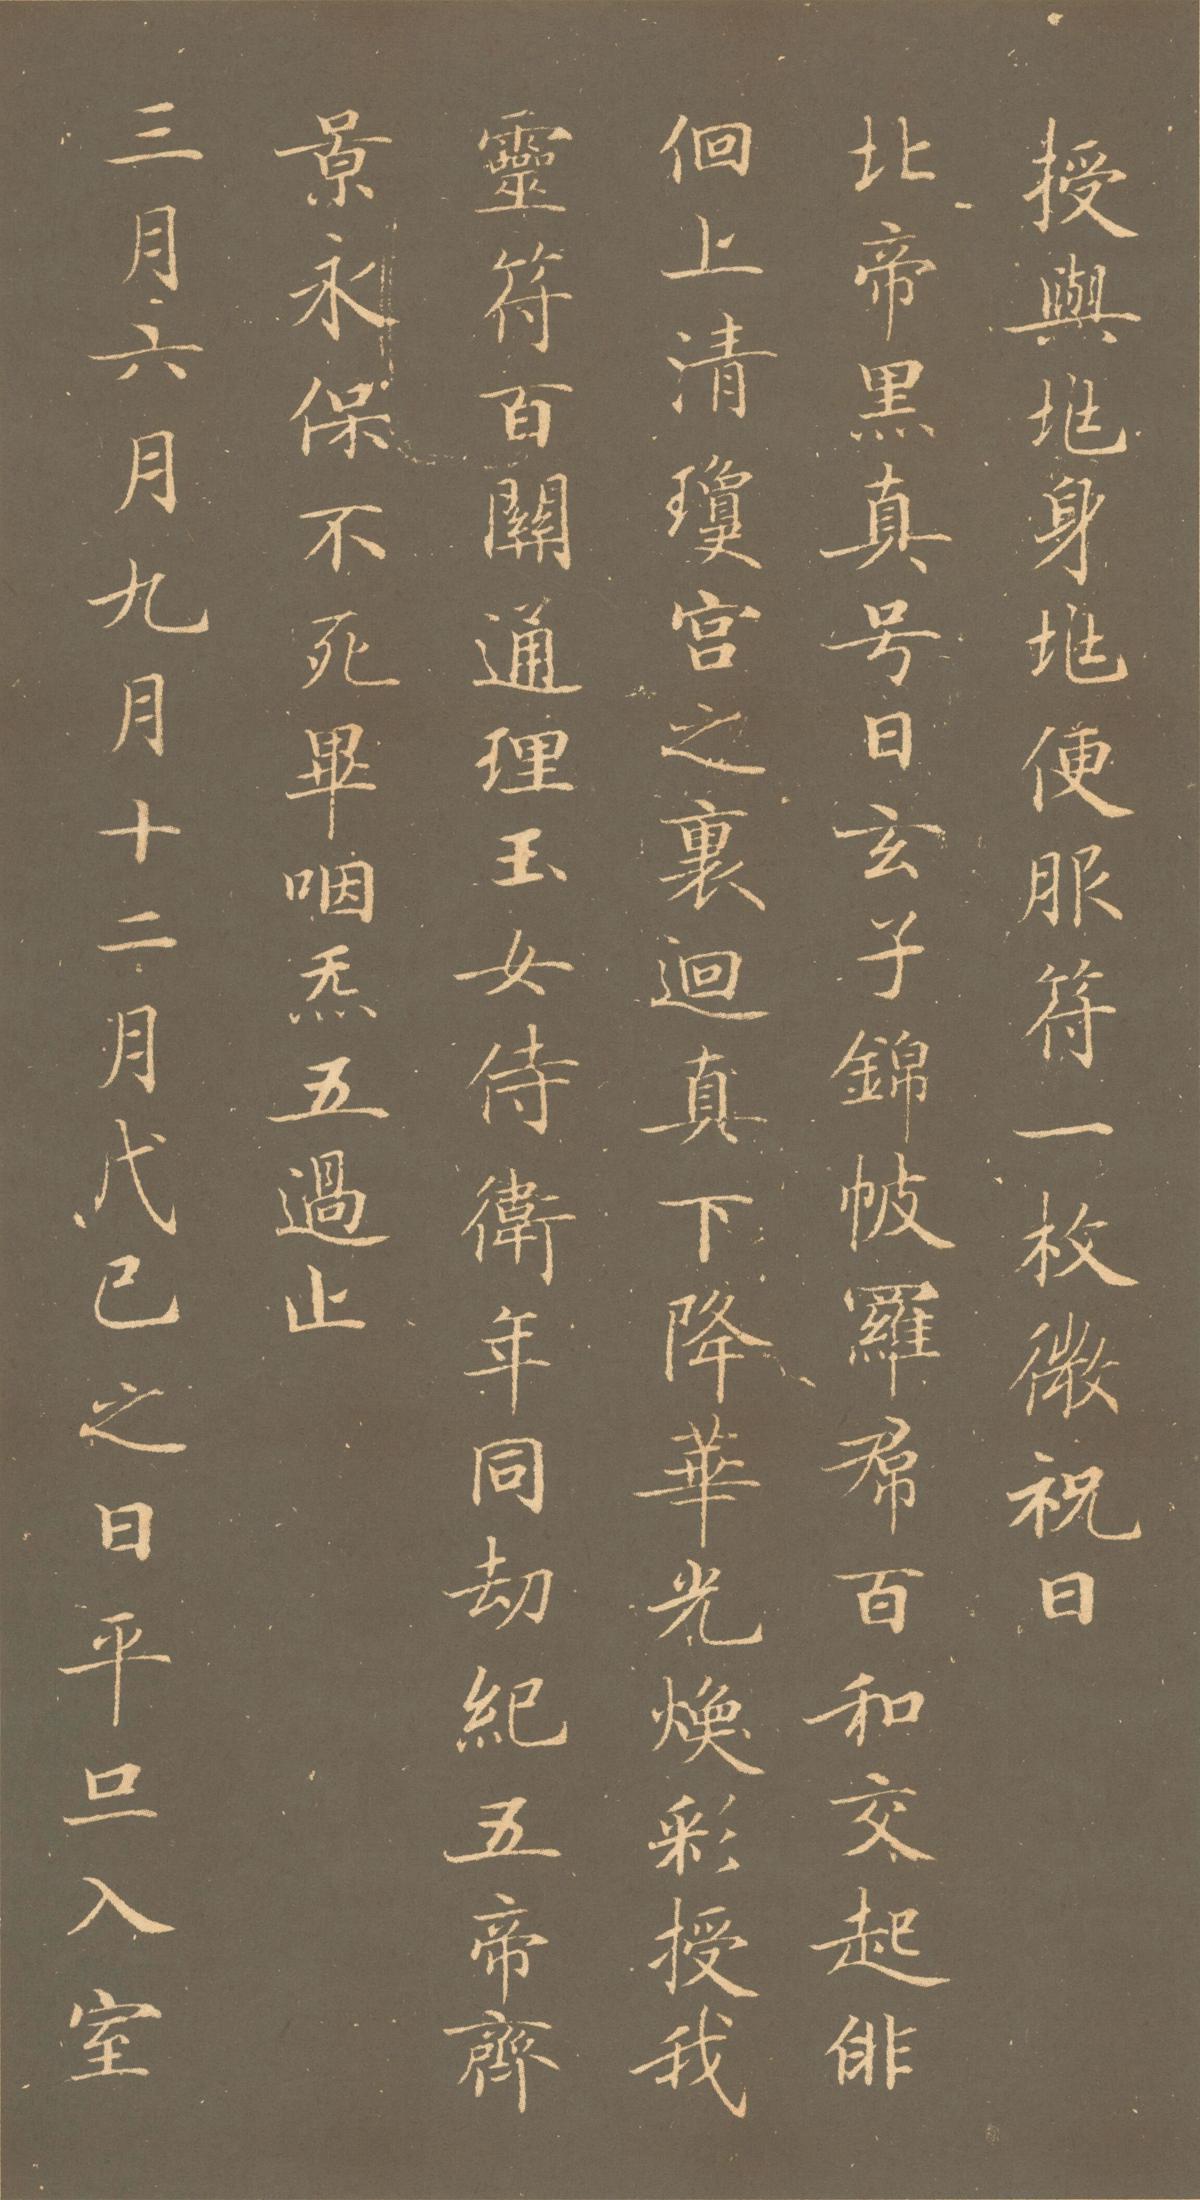 授與𡉏身𡉏便服符一枚微祝曰
北帝黑真号曰玄子錦帔羅帬百和交起俳
佪上清瓊宫之裏迴真下降華光煥彩授我
靈符百關通理玉女侍衛年同劫紀五帝齊
景永保不死畢咽炁五過止
三月六月九月十二月戊巳之日平旦入室